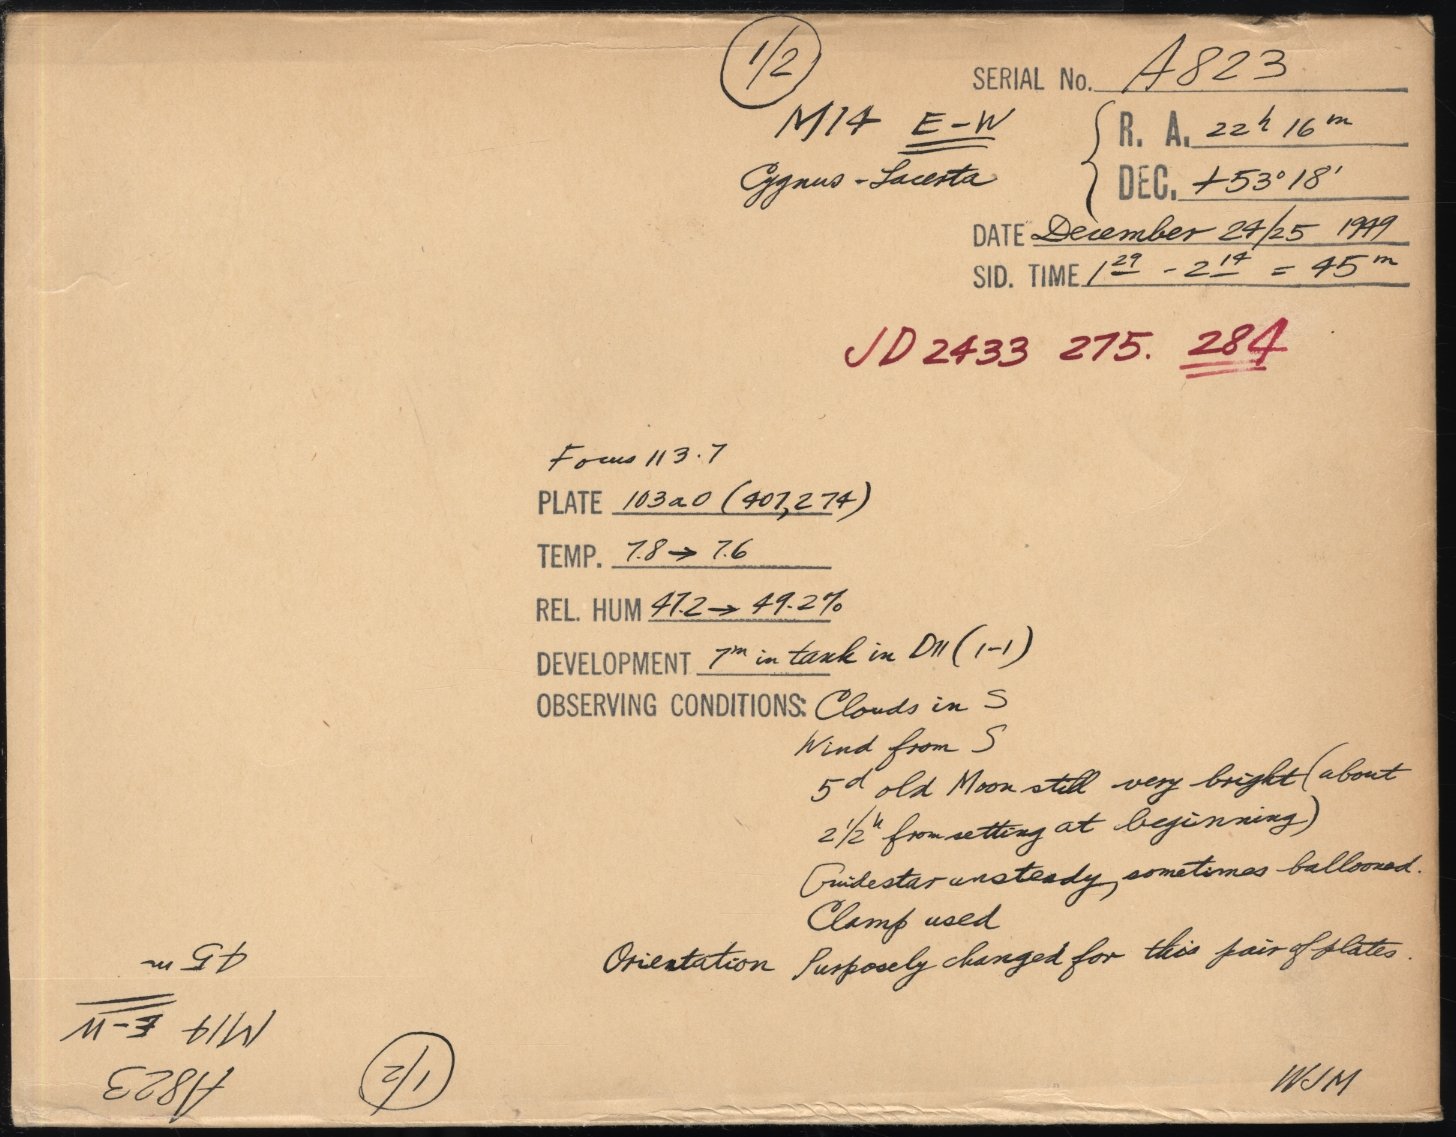 1/2
SERIAL No. A823
M14 E-W
R. A. 22h 16m
Cygnus - Lacerta
DEC. +53° 18'
DATE December 24/25 1949
SID. TIME 1 29 - 2 14 = 45m
JD 2433 275. 284
Focus 113.7
PLATE 103a0 (407,274)
TEMP. 7.8 → 7.6
REL. HUM 47.2 → 49.2%
DEVELOPMENT 7m in tank in D11 (1-1)
OBSERVING CONDITIONS: Clouds in S
Wind from S
5d old Moon still very bright (about
2 1/2h from setting at beginning)
Guidestar unsteady, sometimes ballooned.
Clamp used
Orientation Purposely changed for this pair of plates.
WJM
A823
1/2
M14 E-W
45m